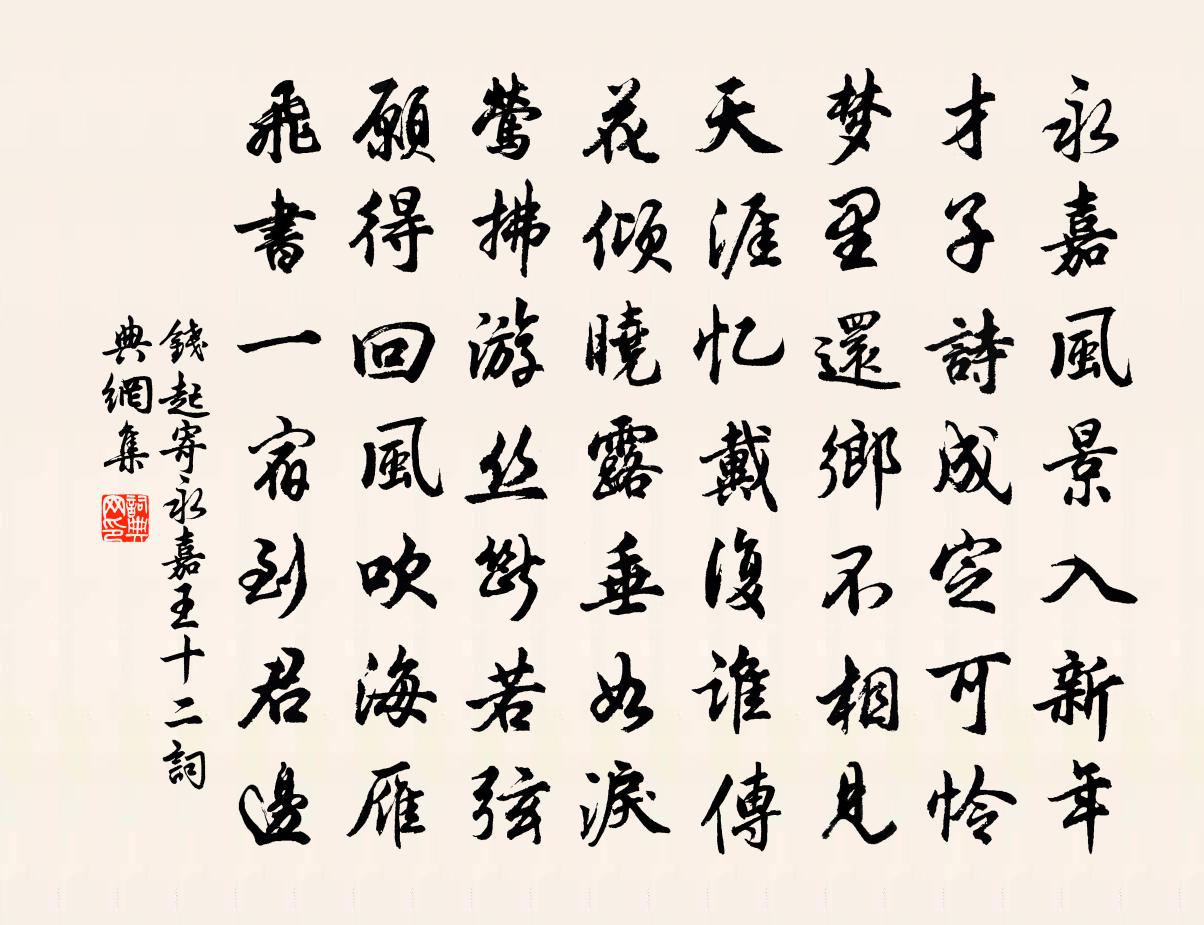 永嘉風景入新年
才子詩成定可怜
梦里還鄉不相見
天涯忆戴復谁傳
花倾曉露垂如淚
莺拂游丝斷若弦
願得回風吹海雁
飛書一宿到君邊
錢起寄永嘉王十二詞
典網集
詞典網印